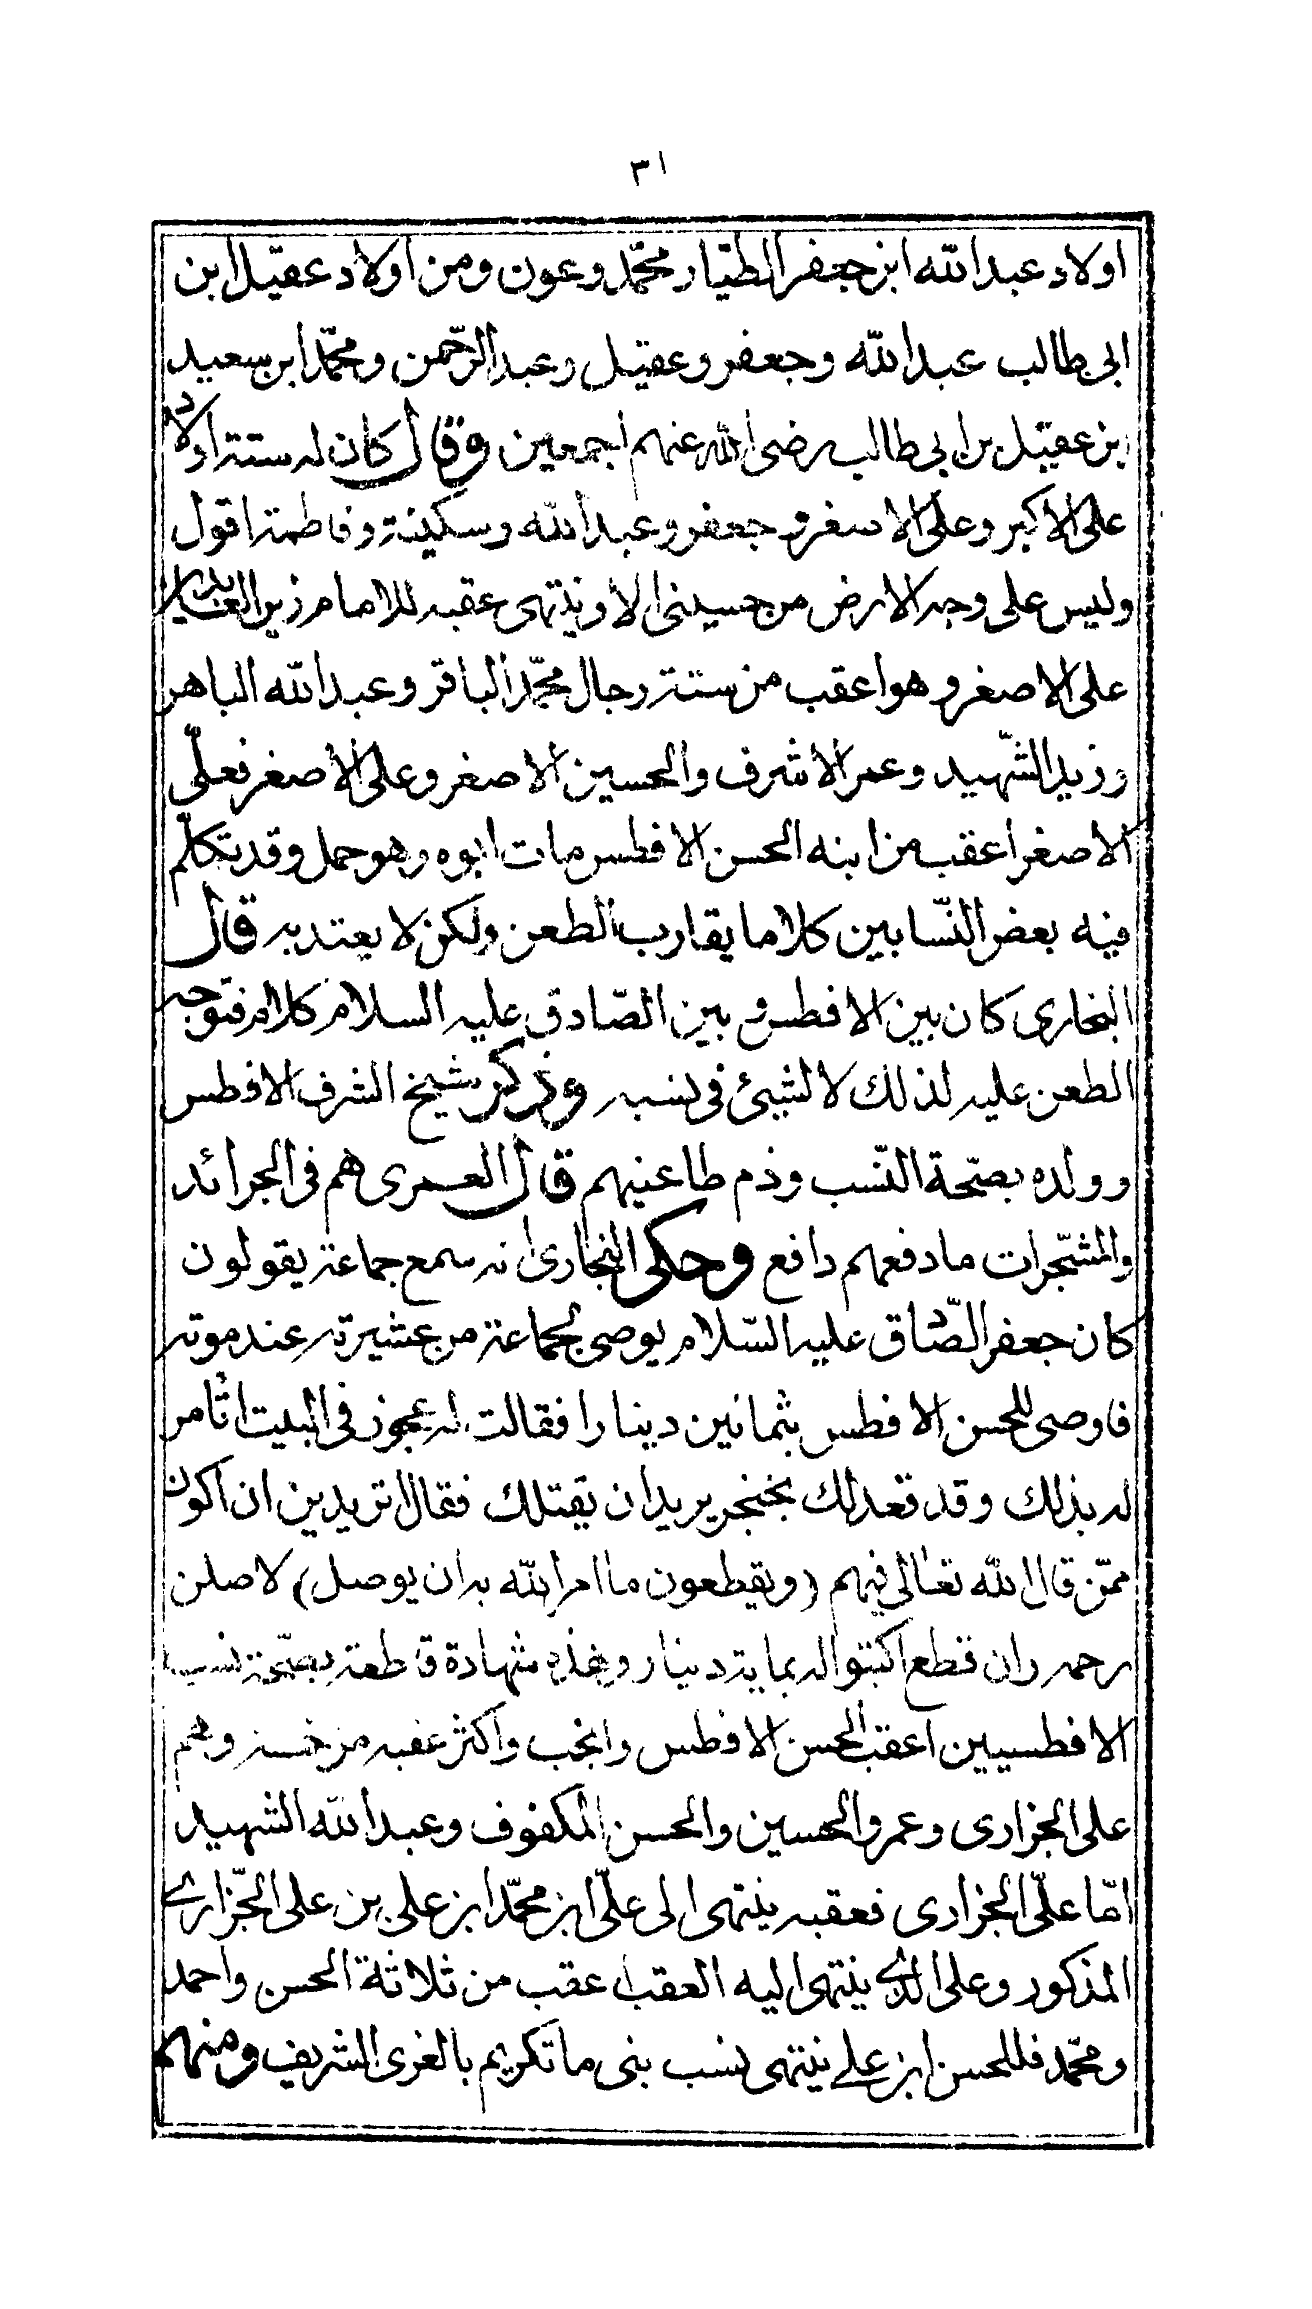 ٣١
اولاد عبدالله ابن جعفر الطيّار محمّد وعون ومن اولاد عقيل ابن
ابى طالب عبدالله وجعفر وعقيل وعبدالرّحمن ومحمّد ابن سعيد
بن عقيل بن ابى طالب رضى الله عنهم اجمعين وقال كان له ستة اولاد
على الاكبر وعلى الاصغر وجعفر وعبدالله وسكينة وفاطمة اقول
وليس على وجه الارض من حسينى الا وينتهى عقبه للامام زين العابدين
على الاصغر وهو اعقب من ستة رجال محمّد الباقر وعبدالله الباهر
وزيد الشّهيد وعمر الاشرف والحسين الاصغر وعلى الاصغر فعلّى
الاصغر اعقب من ابنه الحسن الافطس مات ابوه وهو حمل وقد تكلّم
فيه بعض النّسابين كلاما يقارب الطعن ولكن لا يعتد به قال
البخارى كان بين الافطس وبين الصّادق عليه السلام كلام فتوجه
الطعن عليه لذلك لا لشيئ فى نسبه وذكر شيخ الشرف الافطس
وولده بصحّة النّسب وذم طاعنيهم قال العمرى هم فى الجرائد
والمشجّرات ما دفعهم دافع وحكى البخارى انه سمع جماعة يقولون
كان جعفر الصّادق عليه السّلام يوصى لجماعة من عشيرته عند موته
فاوصى للحسن الافطس بثمانين دينارا فقالت له عجوز فى البيت اتامر
له بذلك وقد قعد لك بخنجر يريد ان يقتلك فقال اتريدين ان اكون
ممّن قال الله تعالى فيهم (ويقطعون ما امر الله به ان يوصل) لاصلن
رحمه وان قطع اكتبوا له بماية دينار وهذه شهادة قاطعة بصحّة نسب
الافطسيين اعقب الحسن الافطس وانجب واكثر عقبه من خمسة وهم
على الجزارى وعمر والحسين والحسن المكفوف وعبدالله الشهيد
امّا علّى الجزارى فعقبه ينتهى الى علّى ابن محمّد ابن على بن على الجّزارى
المذكور وعلى الذى ينتهى اليه العقب اعقب من ثلاثة الحسن واحمد
ومحمّد فللحسن ابن على ينتهى نسب بنى ماتكريم بالغرى الشريف ومنهم